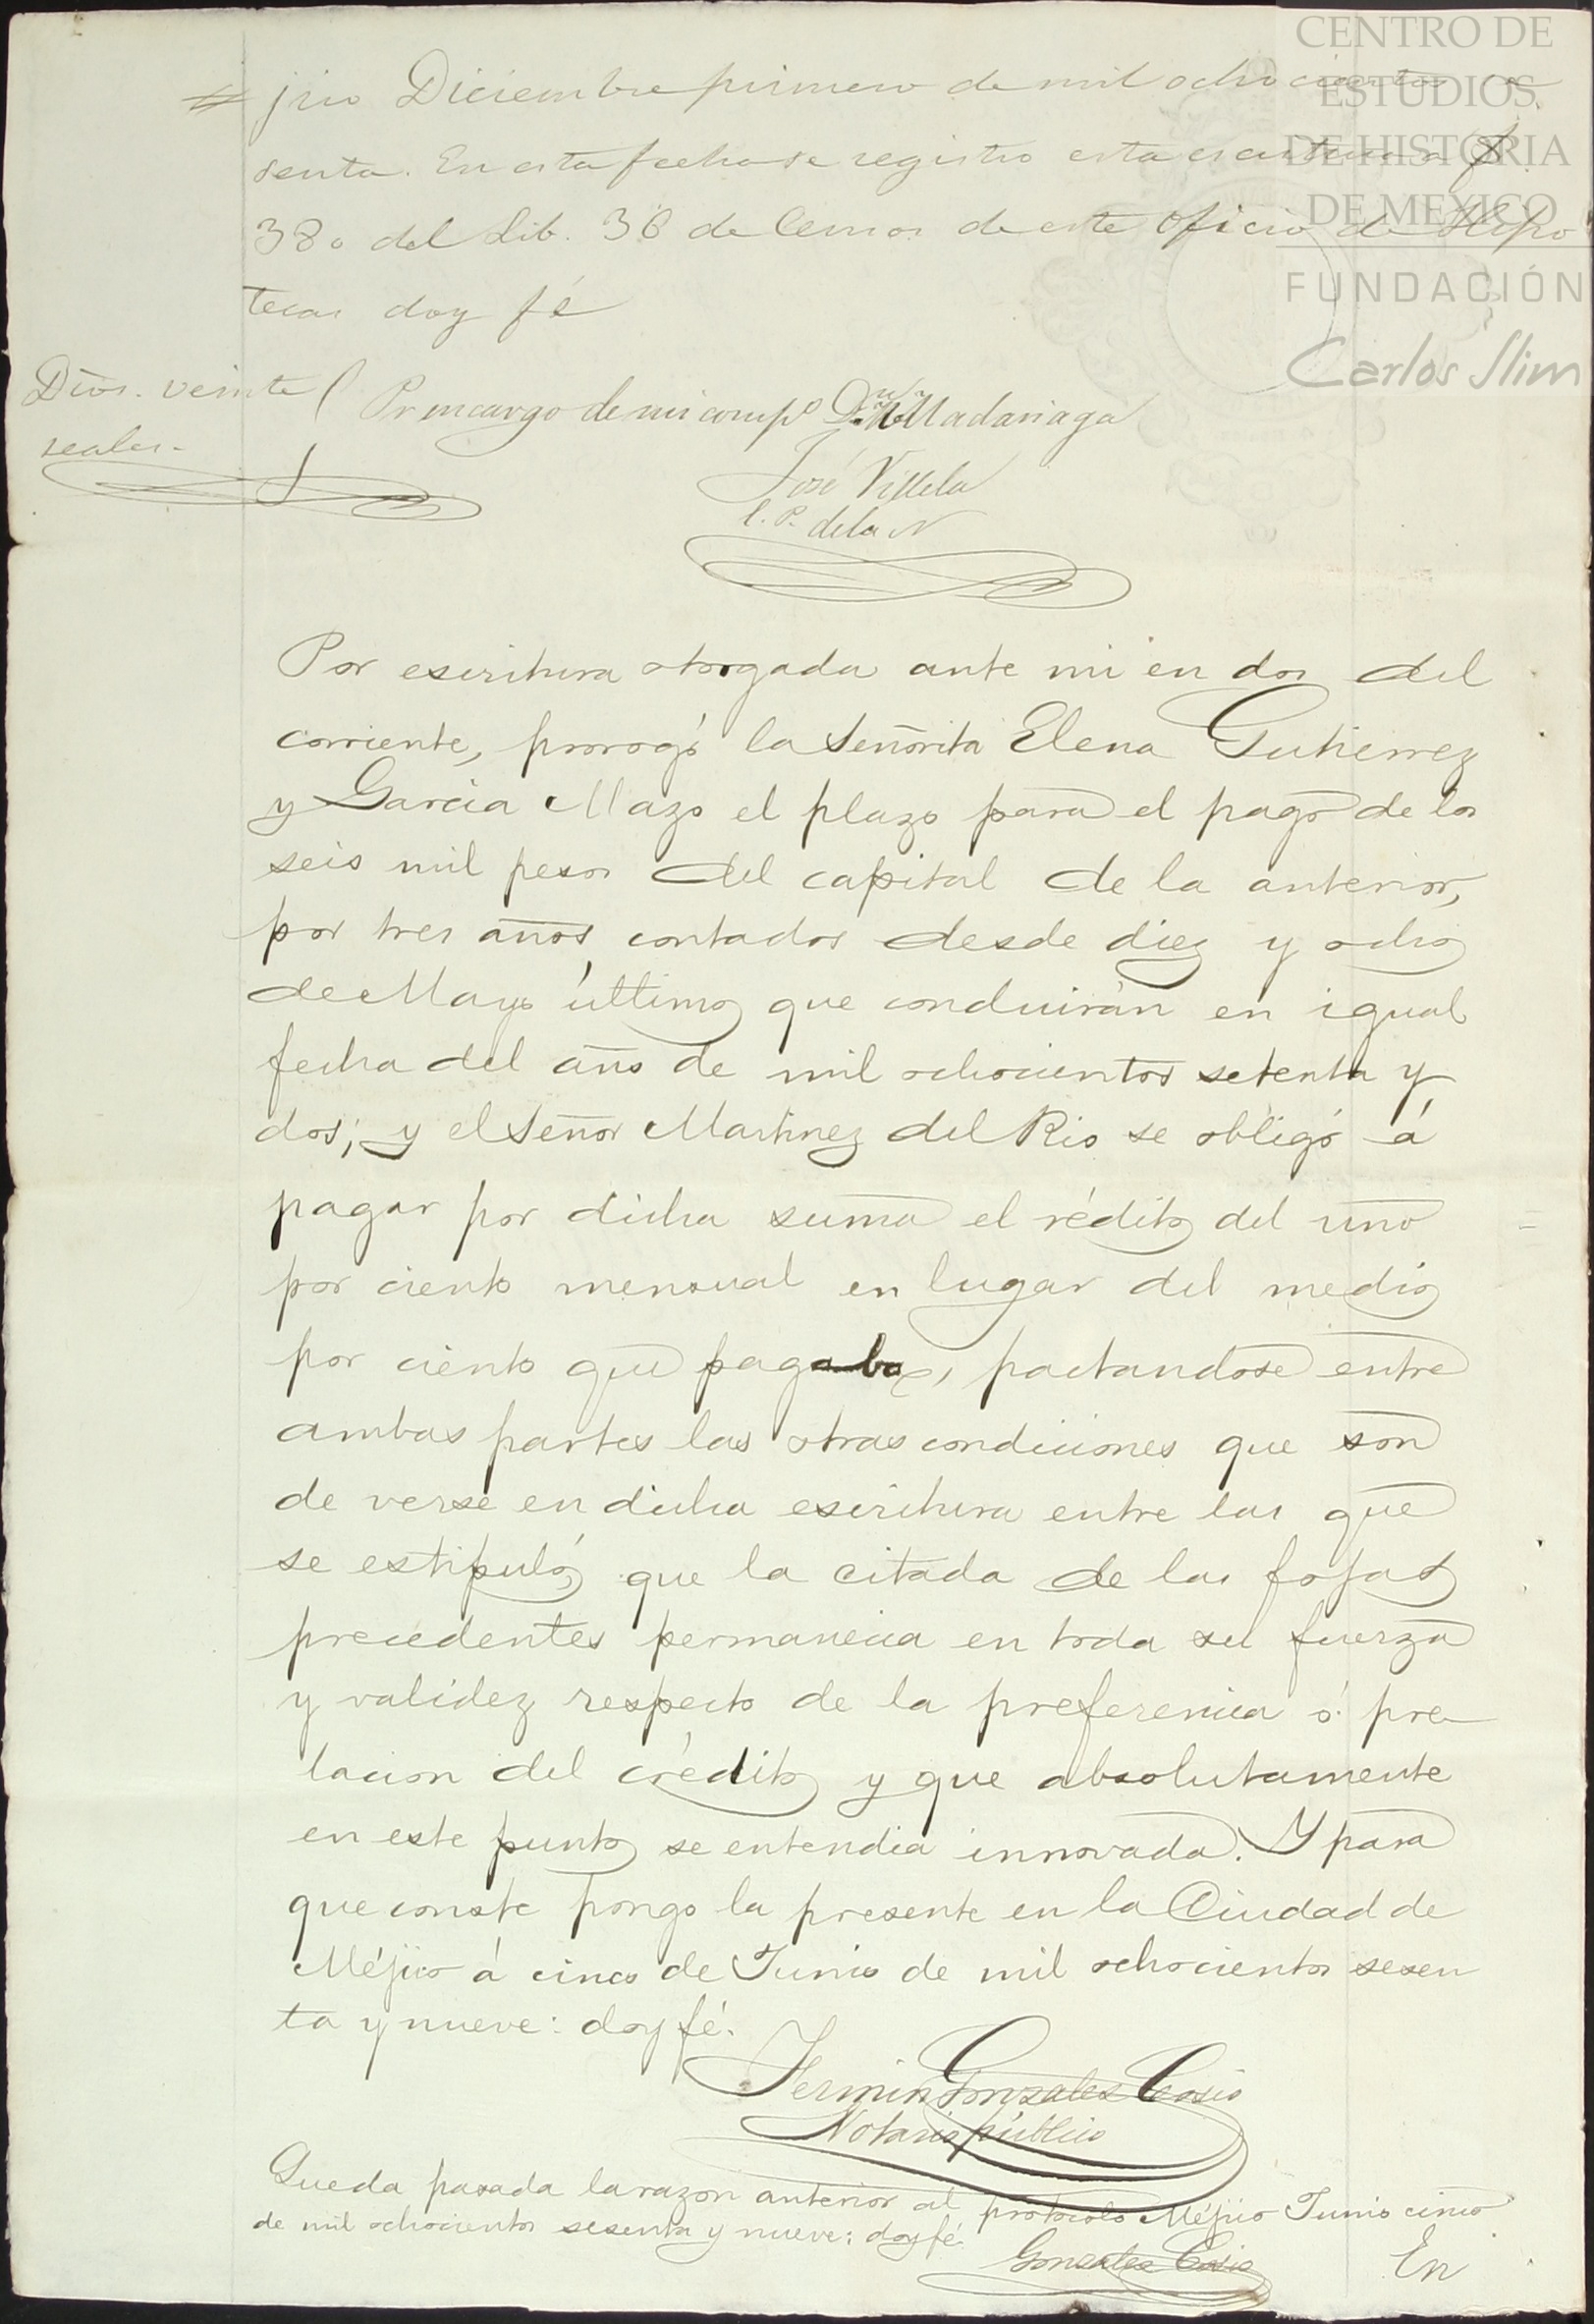 CENTRO DE
ESTUDIOS
DE HISTORIA
DE MEXICO
FUNDACIÓN
Carlos Slim
jico Diciembre primero de mil ochocientos se
senta. En esta fecha se registró esta escritura a f
380 del Lib. 36 de Censos de este Oficio de Hipo
tecas doy fé
Dros. veinte
reales.
Pr encargo de mi comp.o D.n Madariaga
José Villela
E. P. de la N
Por escritura otorgada ante mi en dos del
corriente, prorogó la Señorita Elena Gutierrez
y Garcia Mazo el plazo para el pago de los
seis mil pesos del capital de la anterior,
por tres años, contados desde diez y ocho
de Mayo último, que concluirán en igual
fecha del año de mil ochocientos setenta y
dos; y el Señor Martinez del Rio se obligó á
pagar por dicha suma el rédito del uno
por ciento mensual en lugar del medio
por ciento que pagaba, pactandose entre
ambas partes las otras condiciones que son
de verse en dicha escritura entre las que
se estipuló, que la citada de las fojas
precedentes permanecia en toda su fuerza
y validez respecto de la preferencia ó pre
lacion del crédito y que absolutamente
en este punto se entendia innovada. Y para
que conste pongo la presente en la Ciudad de
Méjico á cinco de Junio de mil ochocientos sesen
ta y nueve: doy fé.
Fermin Gonzalez Cosio
Notario público
Queda pasada la razon anterior al protocolo Méjico Junio cinco
de mil ochocientos sesenta y nueve: doy fé.
Gonzalez Cosio
En